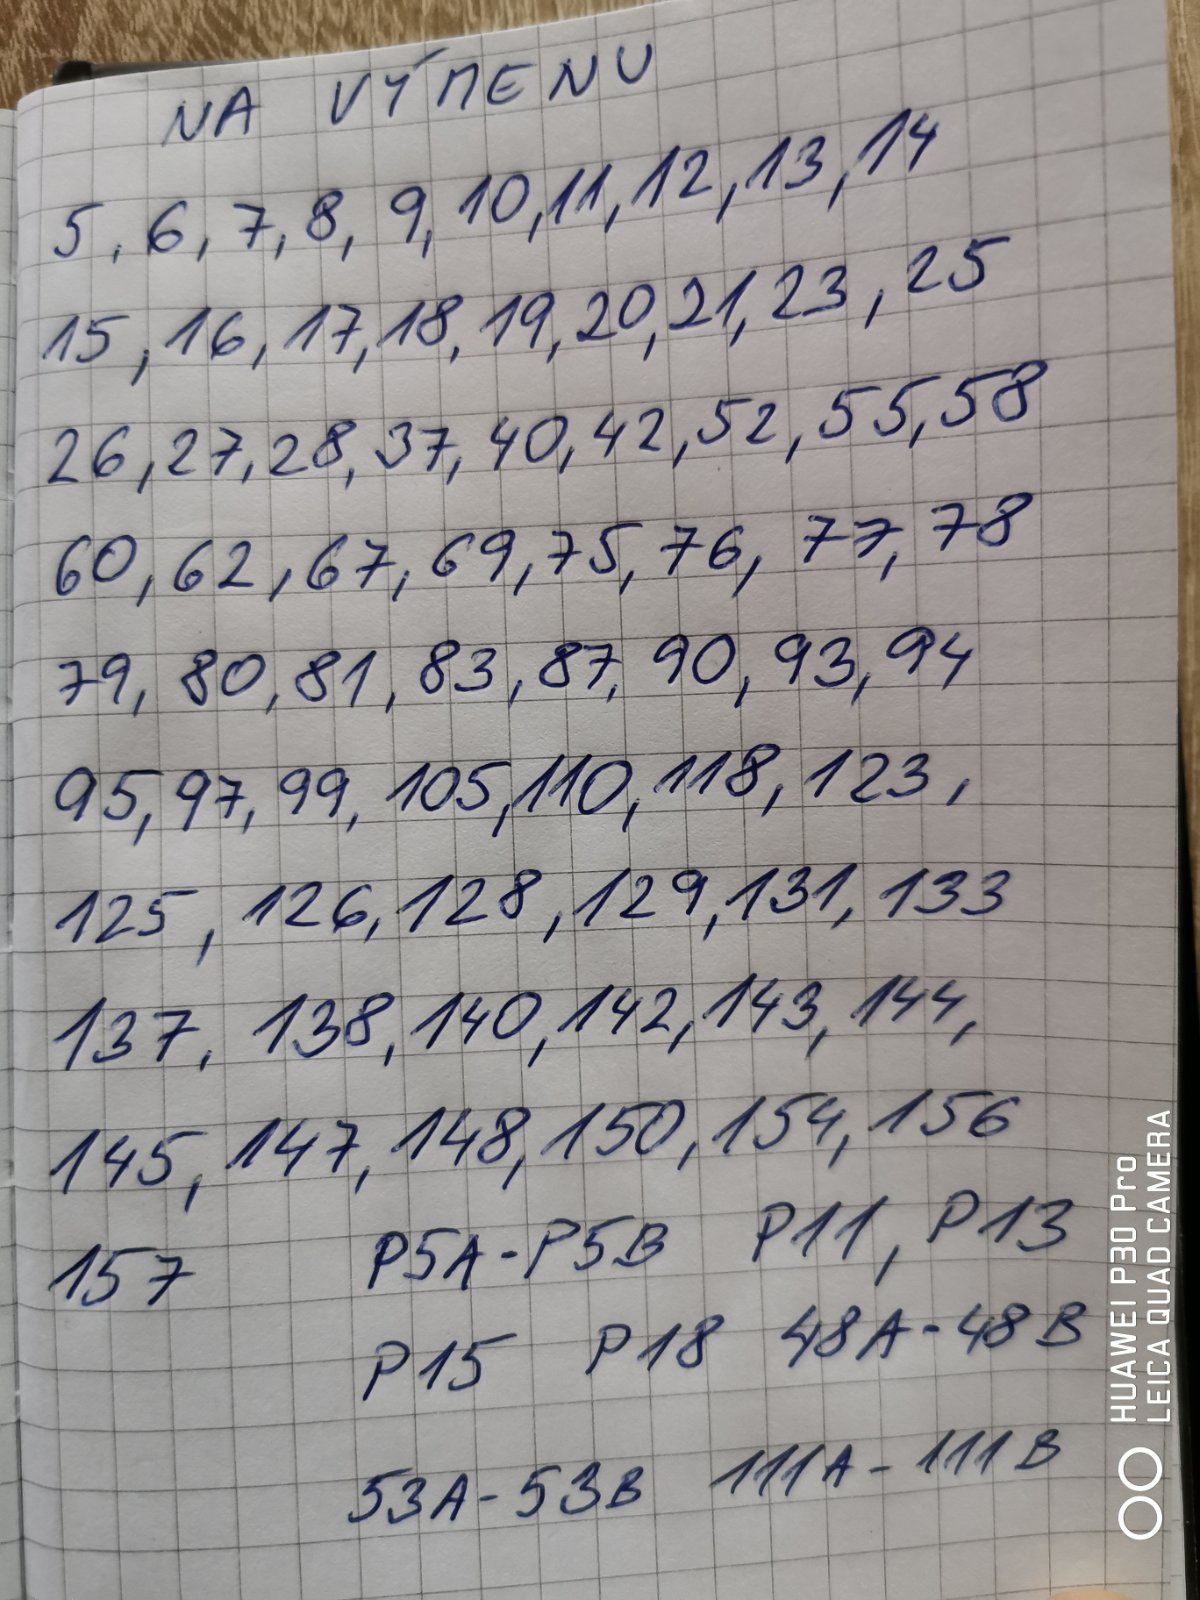 NA VÝMENU
5, 6, 7, 8, 9, 10, 11, 12, 13, 14
15, 16, 17, 18, 19, 20, 21, 23, 25
26, 27, 28, 37, 40, 42, 52, 55, 58
60, 62, 67, 69, 75, 76, 77, 78
79, 80, 81, 83, 87, 90, 93, 94
95, 97, 99, 105, 110, 118, 123,
125, 126, 128, 129, 131, 133
137, 138, 140, 142, 143, 144,
145, 147, 148, 150, 154, 156
157 P5A-P5B P11, P13
P15 P18 48A-48B
53A-53B 111A-111B
HUAWEI P30 Pro
LEICA QUAD CAMERA